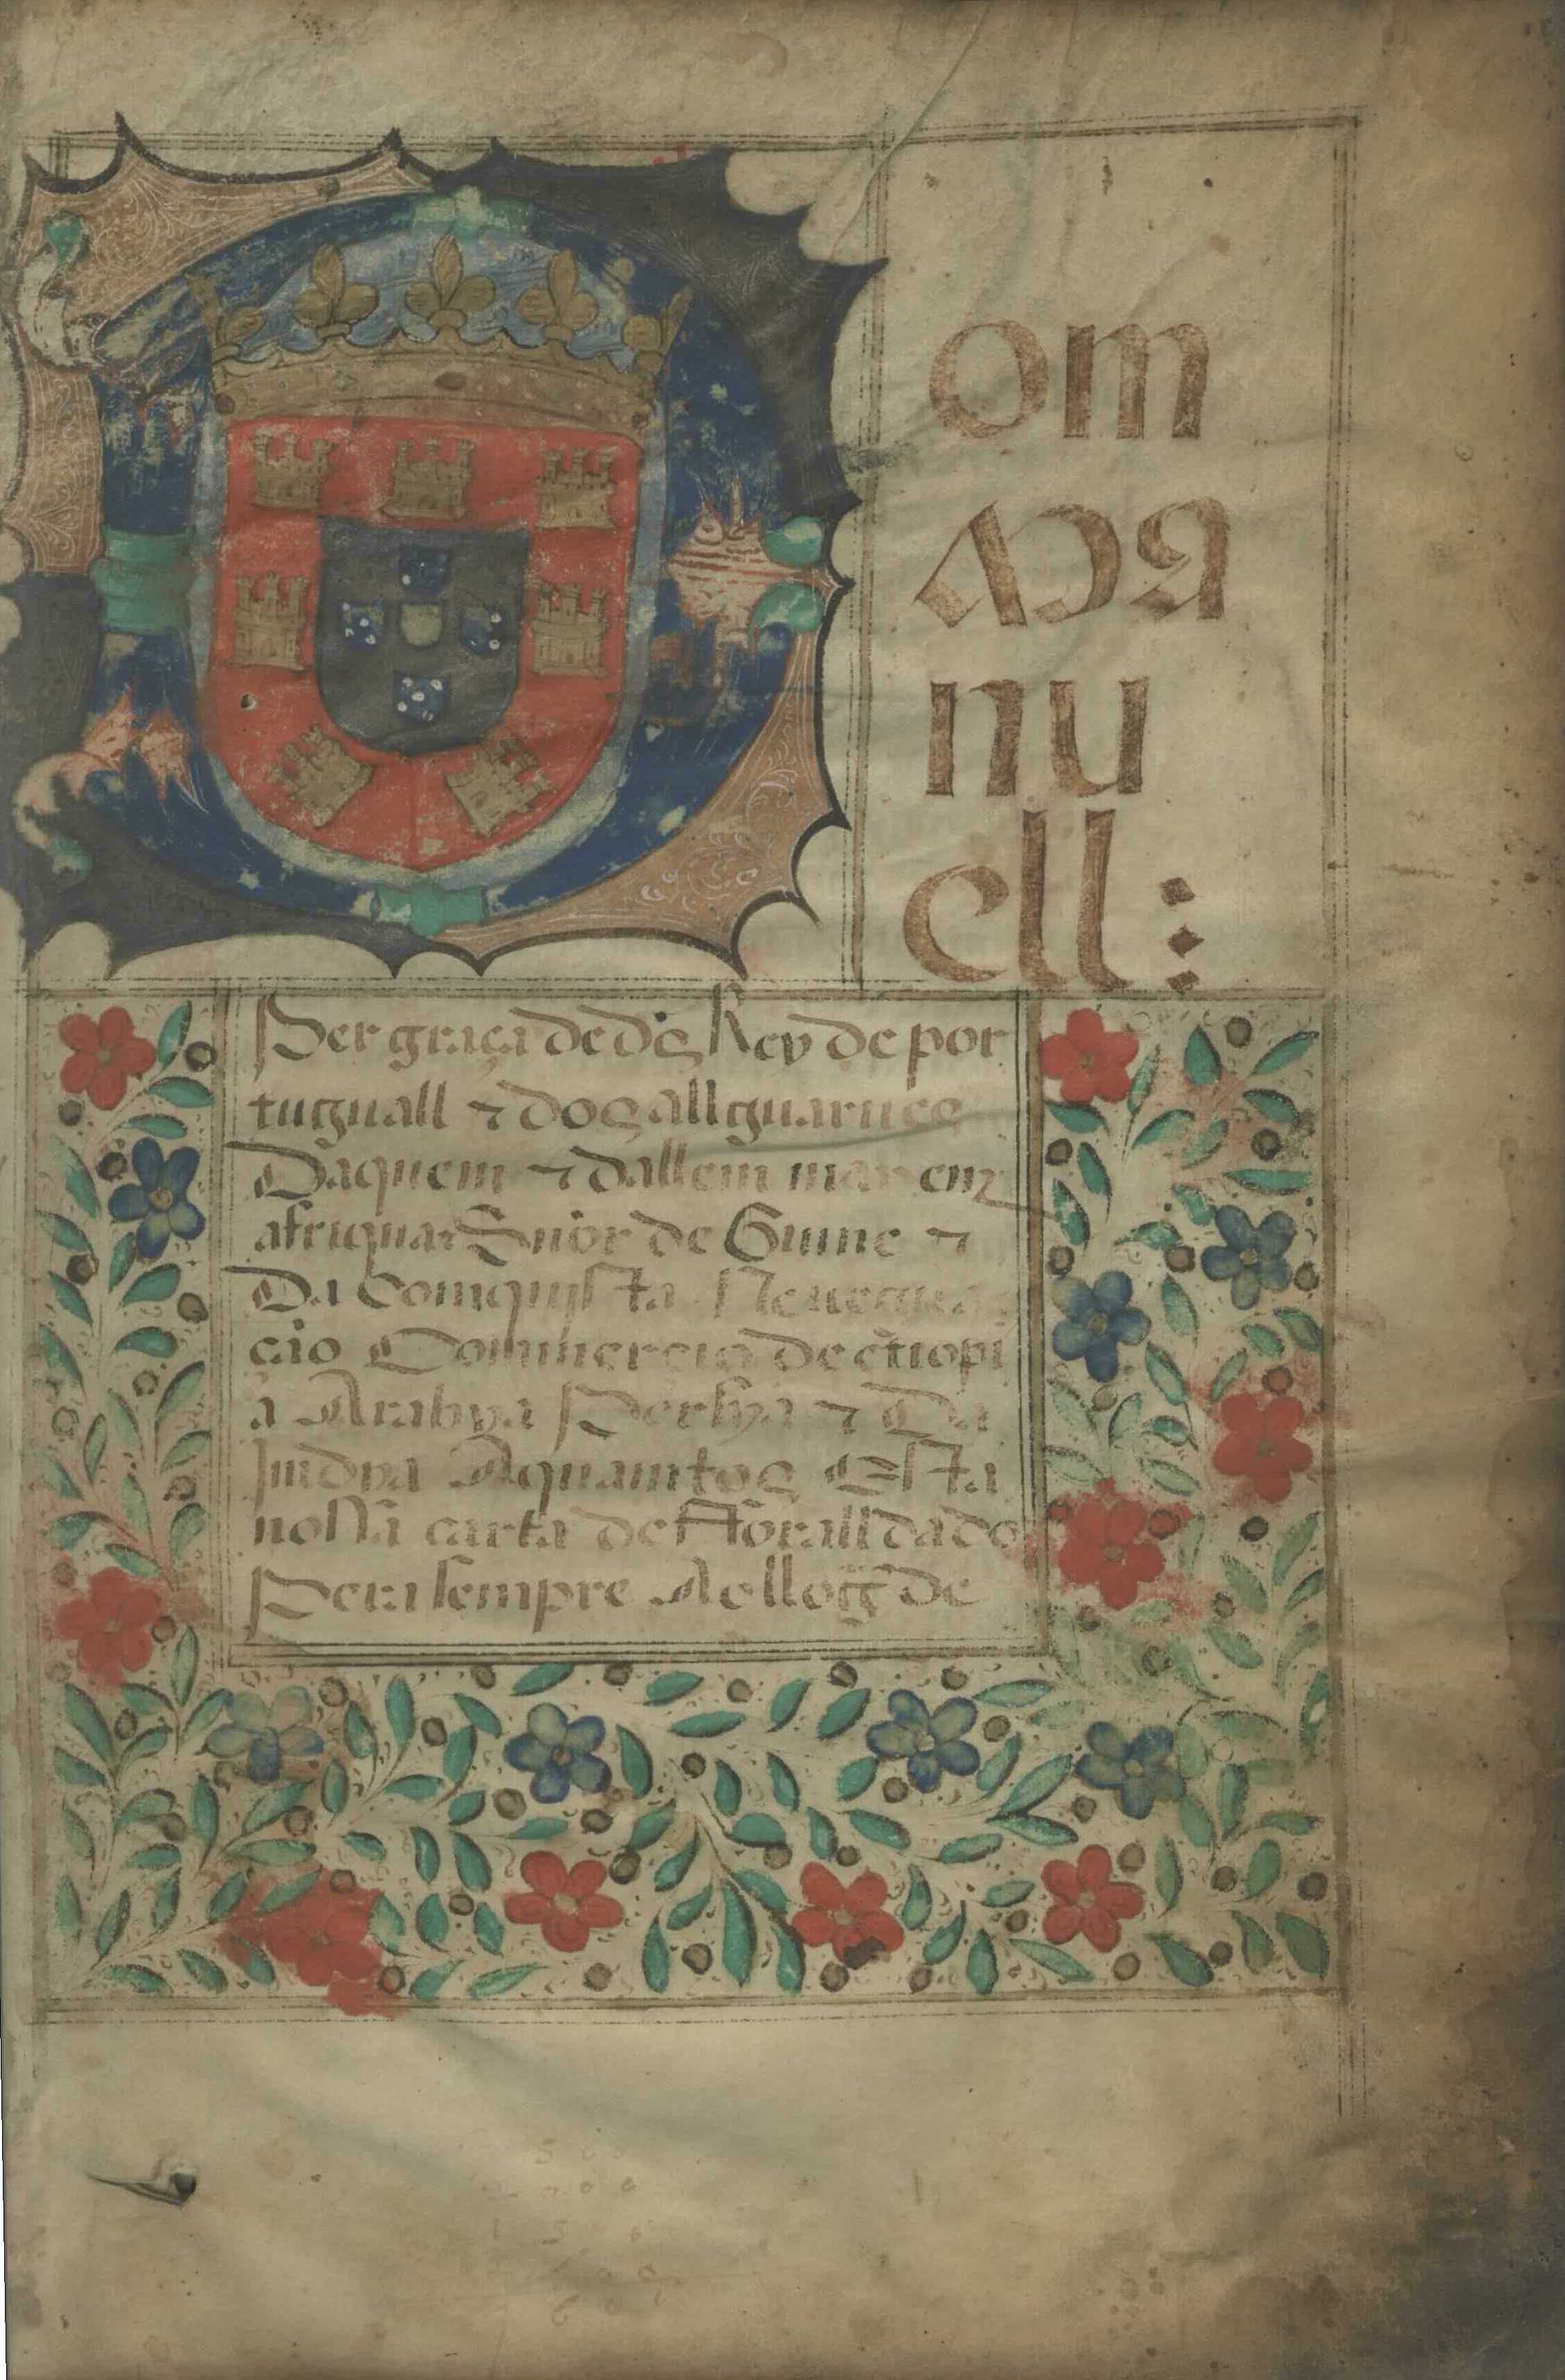 D
om
ma
nu
ell:
Per graça de ds Rey de por
tuguall ⁊ dos allguarues
Daquem ⁊ dallem mar em
afriqua Snor de Guine ⁊
Da Comquista Nauegua
çio Commercio de etiopi
a Arabya Persya ⁊ Da
Jmdya Aquamtos Esta
nossa carta de fforall dado
Pera sempre Aollogg de